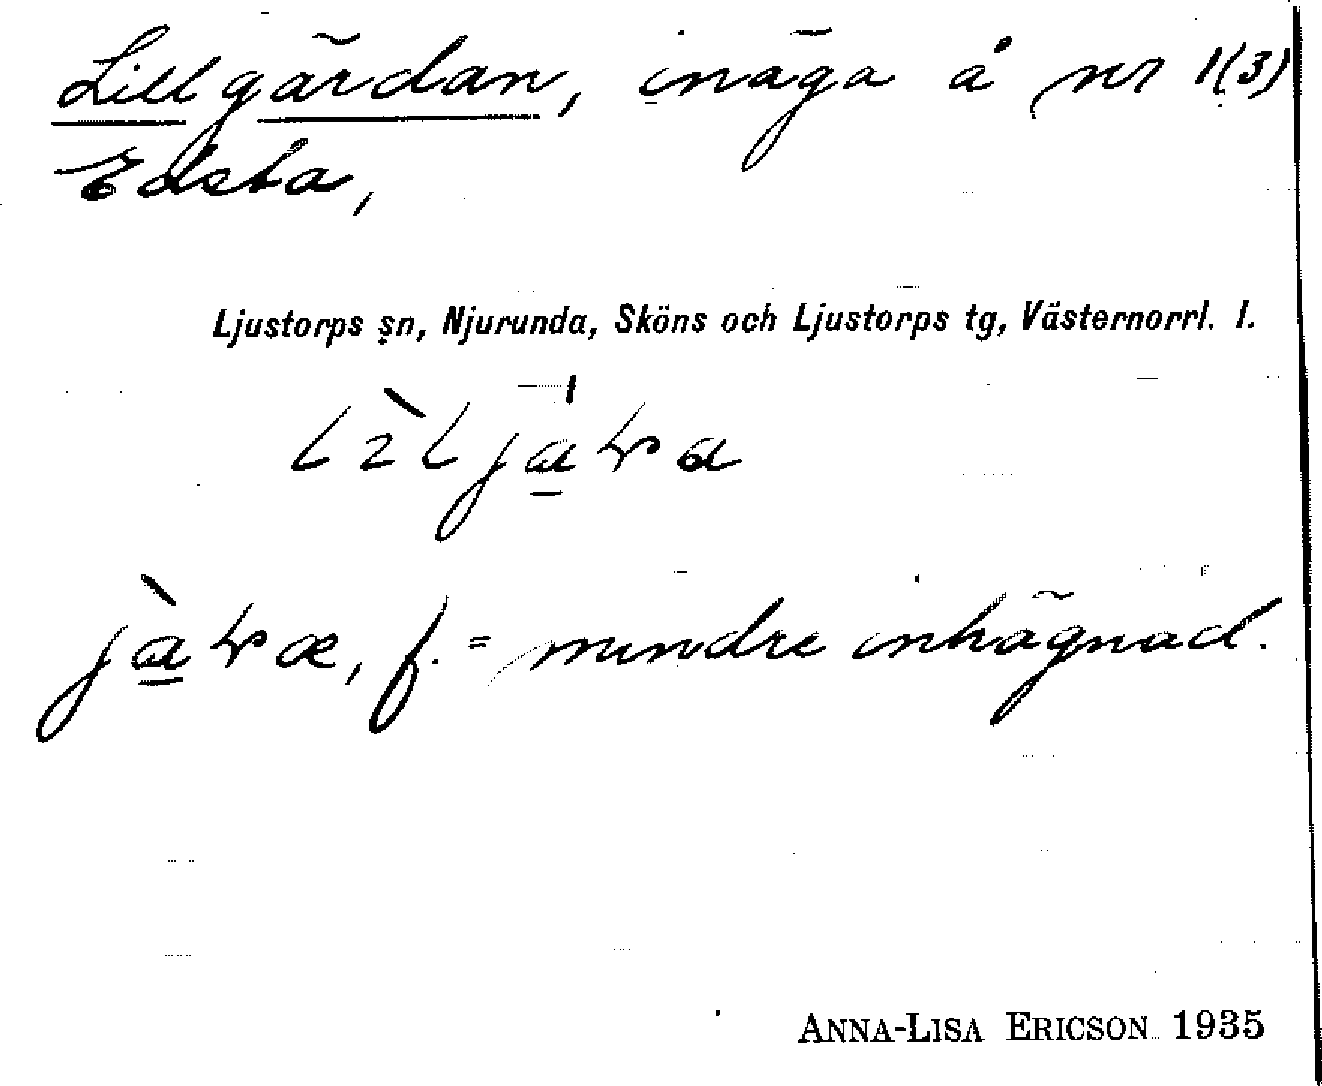 Lillgärdan, inäga å nr 1(3)
Edsta,
Ljustorps sn, Njurunda, Sköns och Ljustorps tg, Västernorrl. l.
f. = mindre inhägnad.
ANNA-LISA ERICSON 1935